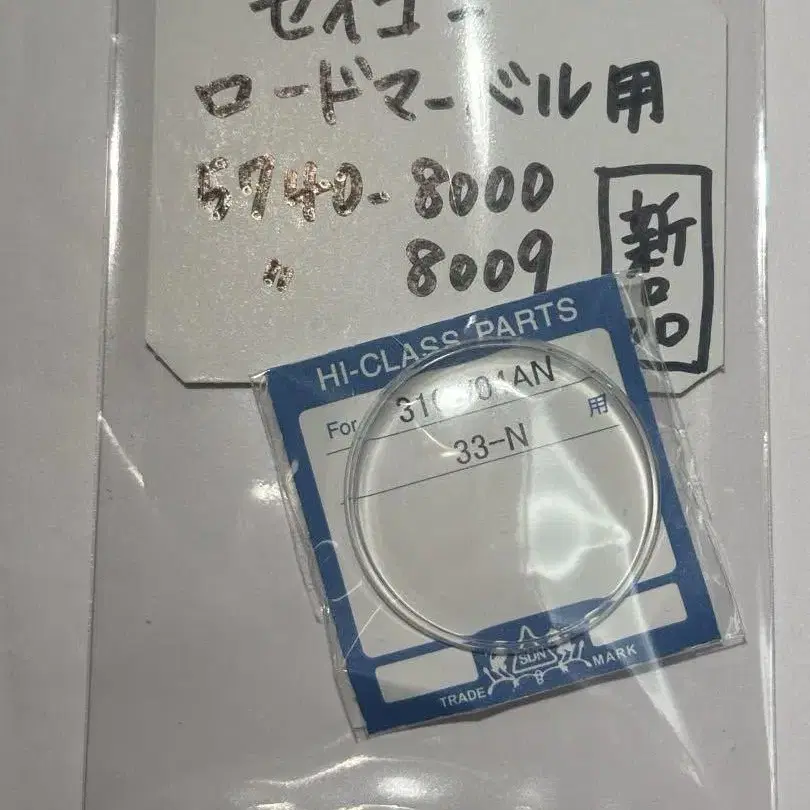 セイコー
ロードマーベル用
5740-8000
〃 8009
新品
HI-CLASS PARTS
For 310W01AN 用
33-N
SUN
TRADE MARK